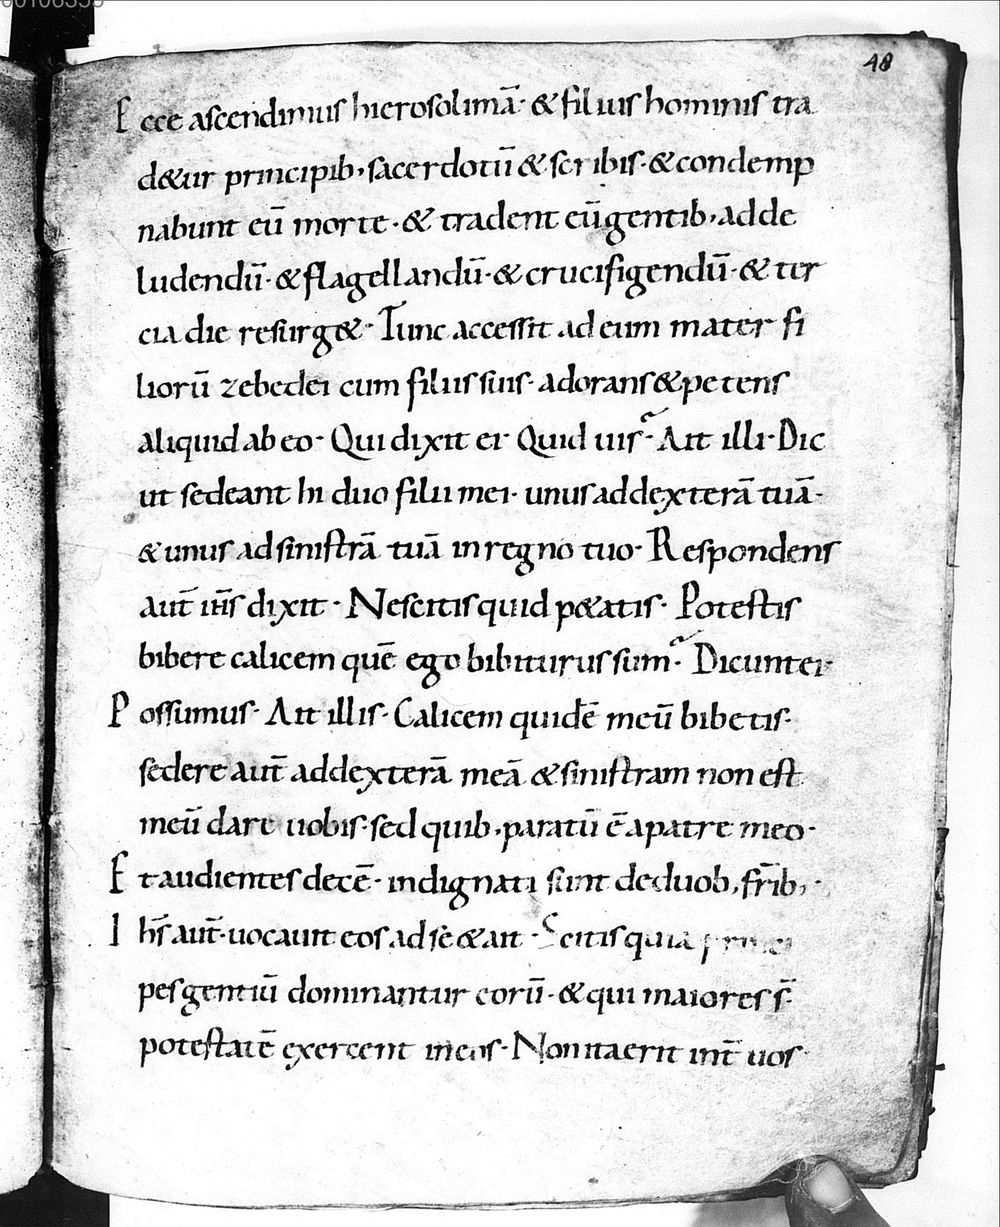 48
Ecce ascendimus hierosolimā· & filius hominis tra
d&ur principib; sacerdotū & scribis· & condemp
nabunt eū morte· & tradent eū gentib; ad de
ludendū· & flagellandū· & crucifigendū· & ter
cia die resurg&· Tunc accessit ad eum mater fi
liorū zebedei cum filiis suis· adorans & petens
aliquid ab eo· Qui dixit ei Quid uis? Ait illi· Dic
ut sedeant hi duo filii mei· unus ad dexterā tuā·
& unus ad sinistrā tuā in regno tuo· Respondens
aut̄ ih̄s dixit· Nescitis quid p&atis· Potestis
bibere calicem quē ego bibiturus sum? Dicunt ei·
Possumus· Ait illis· Calicem quidē meū bibetis·
sedere aut̄ ad dexterā meā & sinistram non est
meū dare uobis· sed quib; paratū ē a patre meo·
Et audientes decē· indignati sunt de duob; fr̄ib;·
Ih̄s aut̄ uocauit eos ad se & ait· Scitis quia princi
pes gentiū dominantur eorū· & qui maiores s̄·
potestatē exercent in eos· Non ita erit int̄ uos·